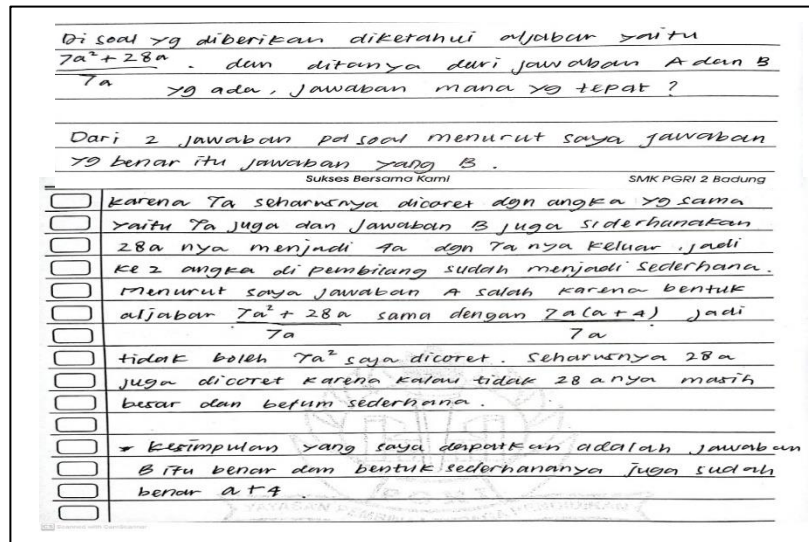 Di soal yg diberikan diketahui aljabar yaitu
7a² + 28a / 7a . dan ditanya dari jawaban A dan B
yg ada, jawaban mana yg tepat ?
Dari 2 jawaban pd soal menurut saya jawaban
yg benar itu jawaban yang B .
Sukses Bersama Kami SMK PGRI 2 Badung
karena 7a seharusnya dicoret dgn angka yg sama
yaitu 7a juga dan jawaban B juga siderhanakan
28a nya menjadi 4a dgn 7a nya keluar . jadi
ke 2 angka di pembilang sudah menjadi sederhana.
Menurut saya jawaban A salah karena bentuk
aljabar 7a² + 28a / 7a sama dengan 7a(a+4) / 7a jadi
tidak boleh 7a² saja dicoret . seharusnya 28a
juga dicoret karena kalau tidak 28 anya masih
besar dan belum sederhana .
* kesimpulan yang saya dapatkan adalah jawaban
B itu benar dan bentuk sederhananya juga sudah
benar a + 4 .
PGRI
CS Scanned with CamScanner